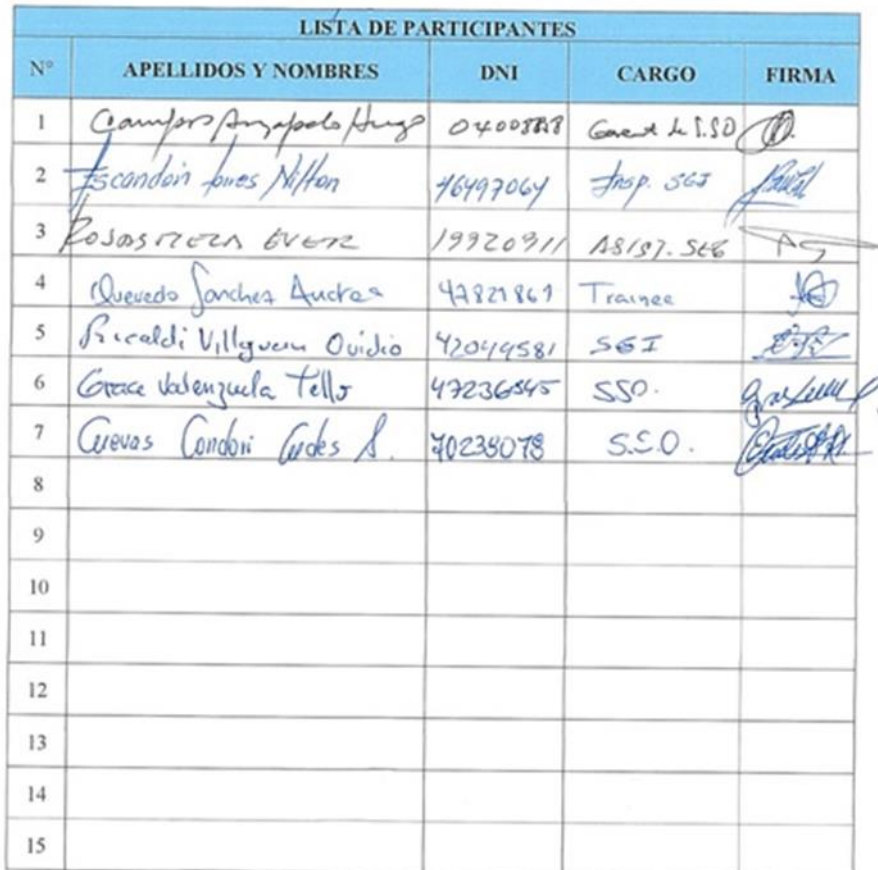 LISTA DE PARTICIPANTES
N° APELLIDOS Y NOMBRES DNI CARGO FIRMA
1 Campos Hugo de SSO
2 Escandon Nilton 46497064 Insp. SGI
3 ROJAS MEZA EVER 19920911 ASIST. SEG
4 Quevedo Sanchez Andrea Trainee
5 Ricaldi Ovidio 42049581 SGI
6 Grace Valenzuela Tello 47236545 SSO.
7 Cuevas Condori S. 70238078 S.S.O.
8
9
10
11
12
13
14
15